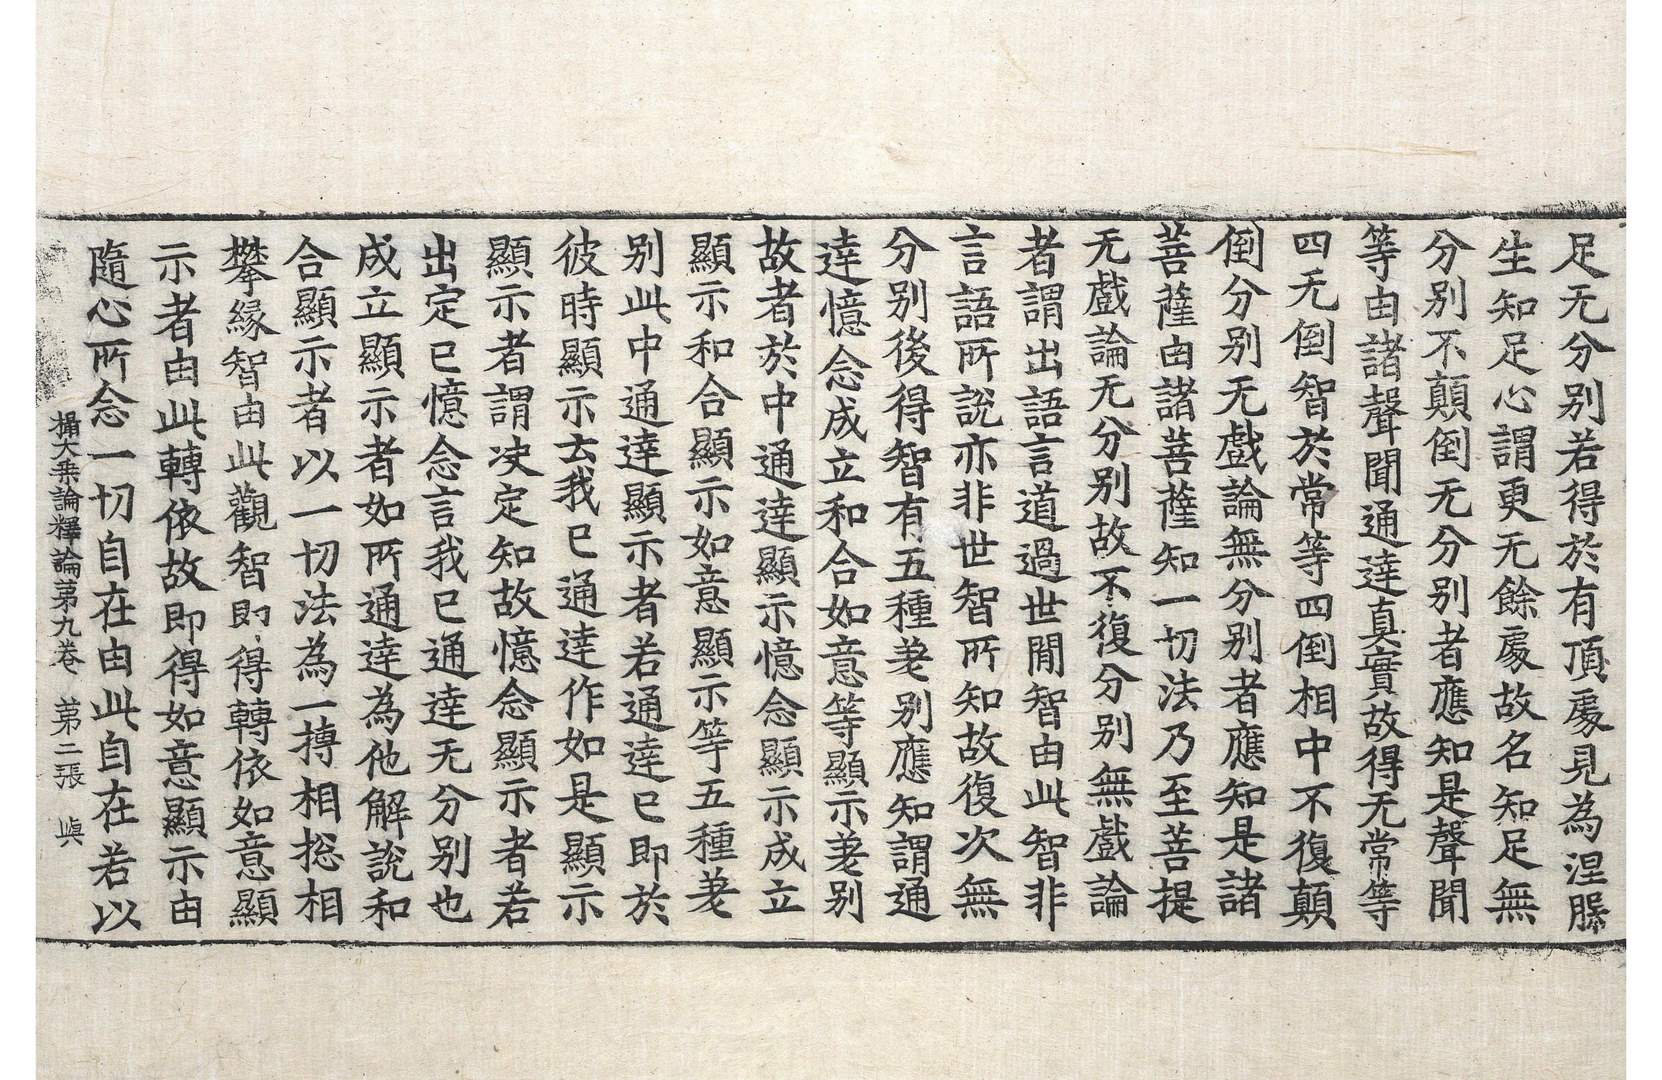 足无分別若得於有頂處見為涅槃
生知足心謂更无餘處故名知足無
分別不顛倒无分別者應知是聲聞
等由諸聲聞通達真實故得无常等
四无倒智於常等四倒相中不復顛
倒分別无戲論無分別者應知是諸
菩薩由諸菩薩知一切法乃至菩提
无戲論无分別故不復分別無戲論
者謂出語言道過世間智由此智非
言語所說亦非世智所知故復次無
分別後得智有五種差別應知謂通
達憶念成立和合如意等顯示差別
故者於中通達顯示憶念顯示成立
顯示和合顯示如意顯示等五種差
別此中通達顯示者若通達已即於
彼時顯示去我已通達作如是顯示
顯示者謂決定知故憶念顯示者若
出定已憶念言我已通達无分別也
成立顯示者如所通達為他解說和
合顯示者以一切法為一摶相揔相
攀緣智由此觀智即得轉依如意顯
示者由此轉依故即得如意顯示由
隨心所念一切自在由此自在若以
攝大乘論釋論第九卷　第二張　與